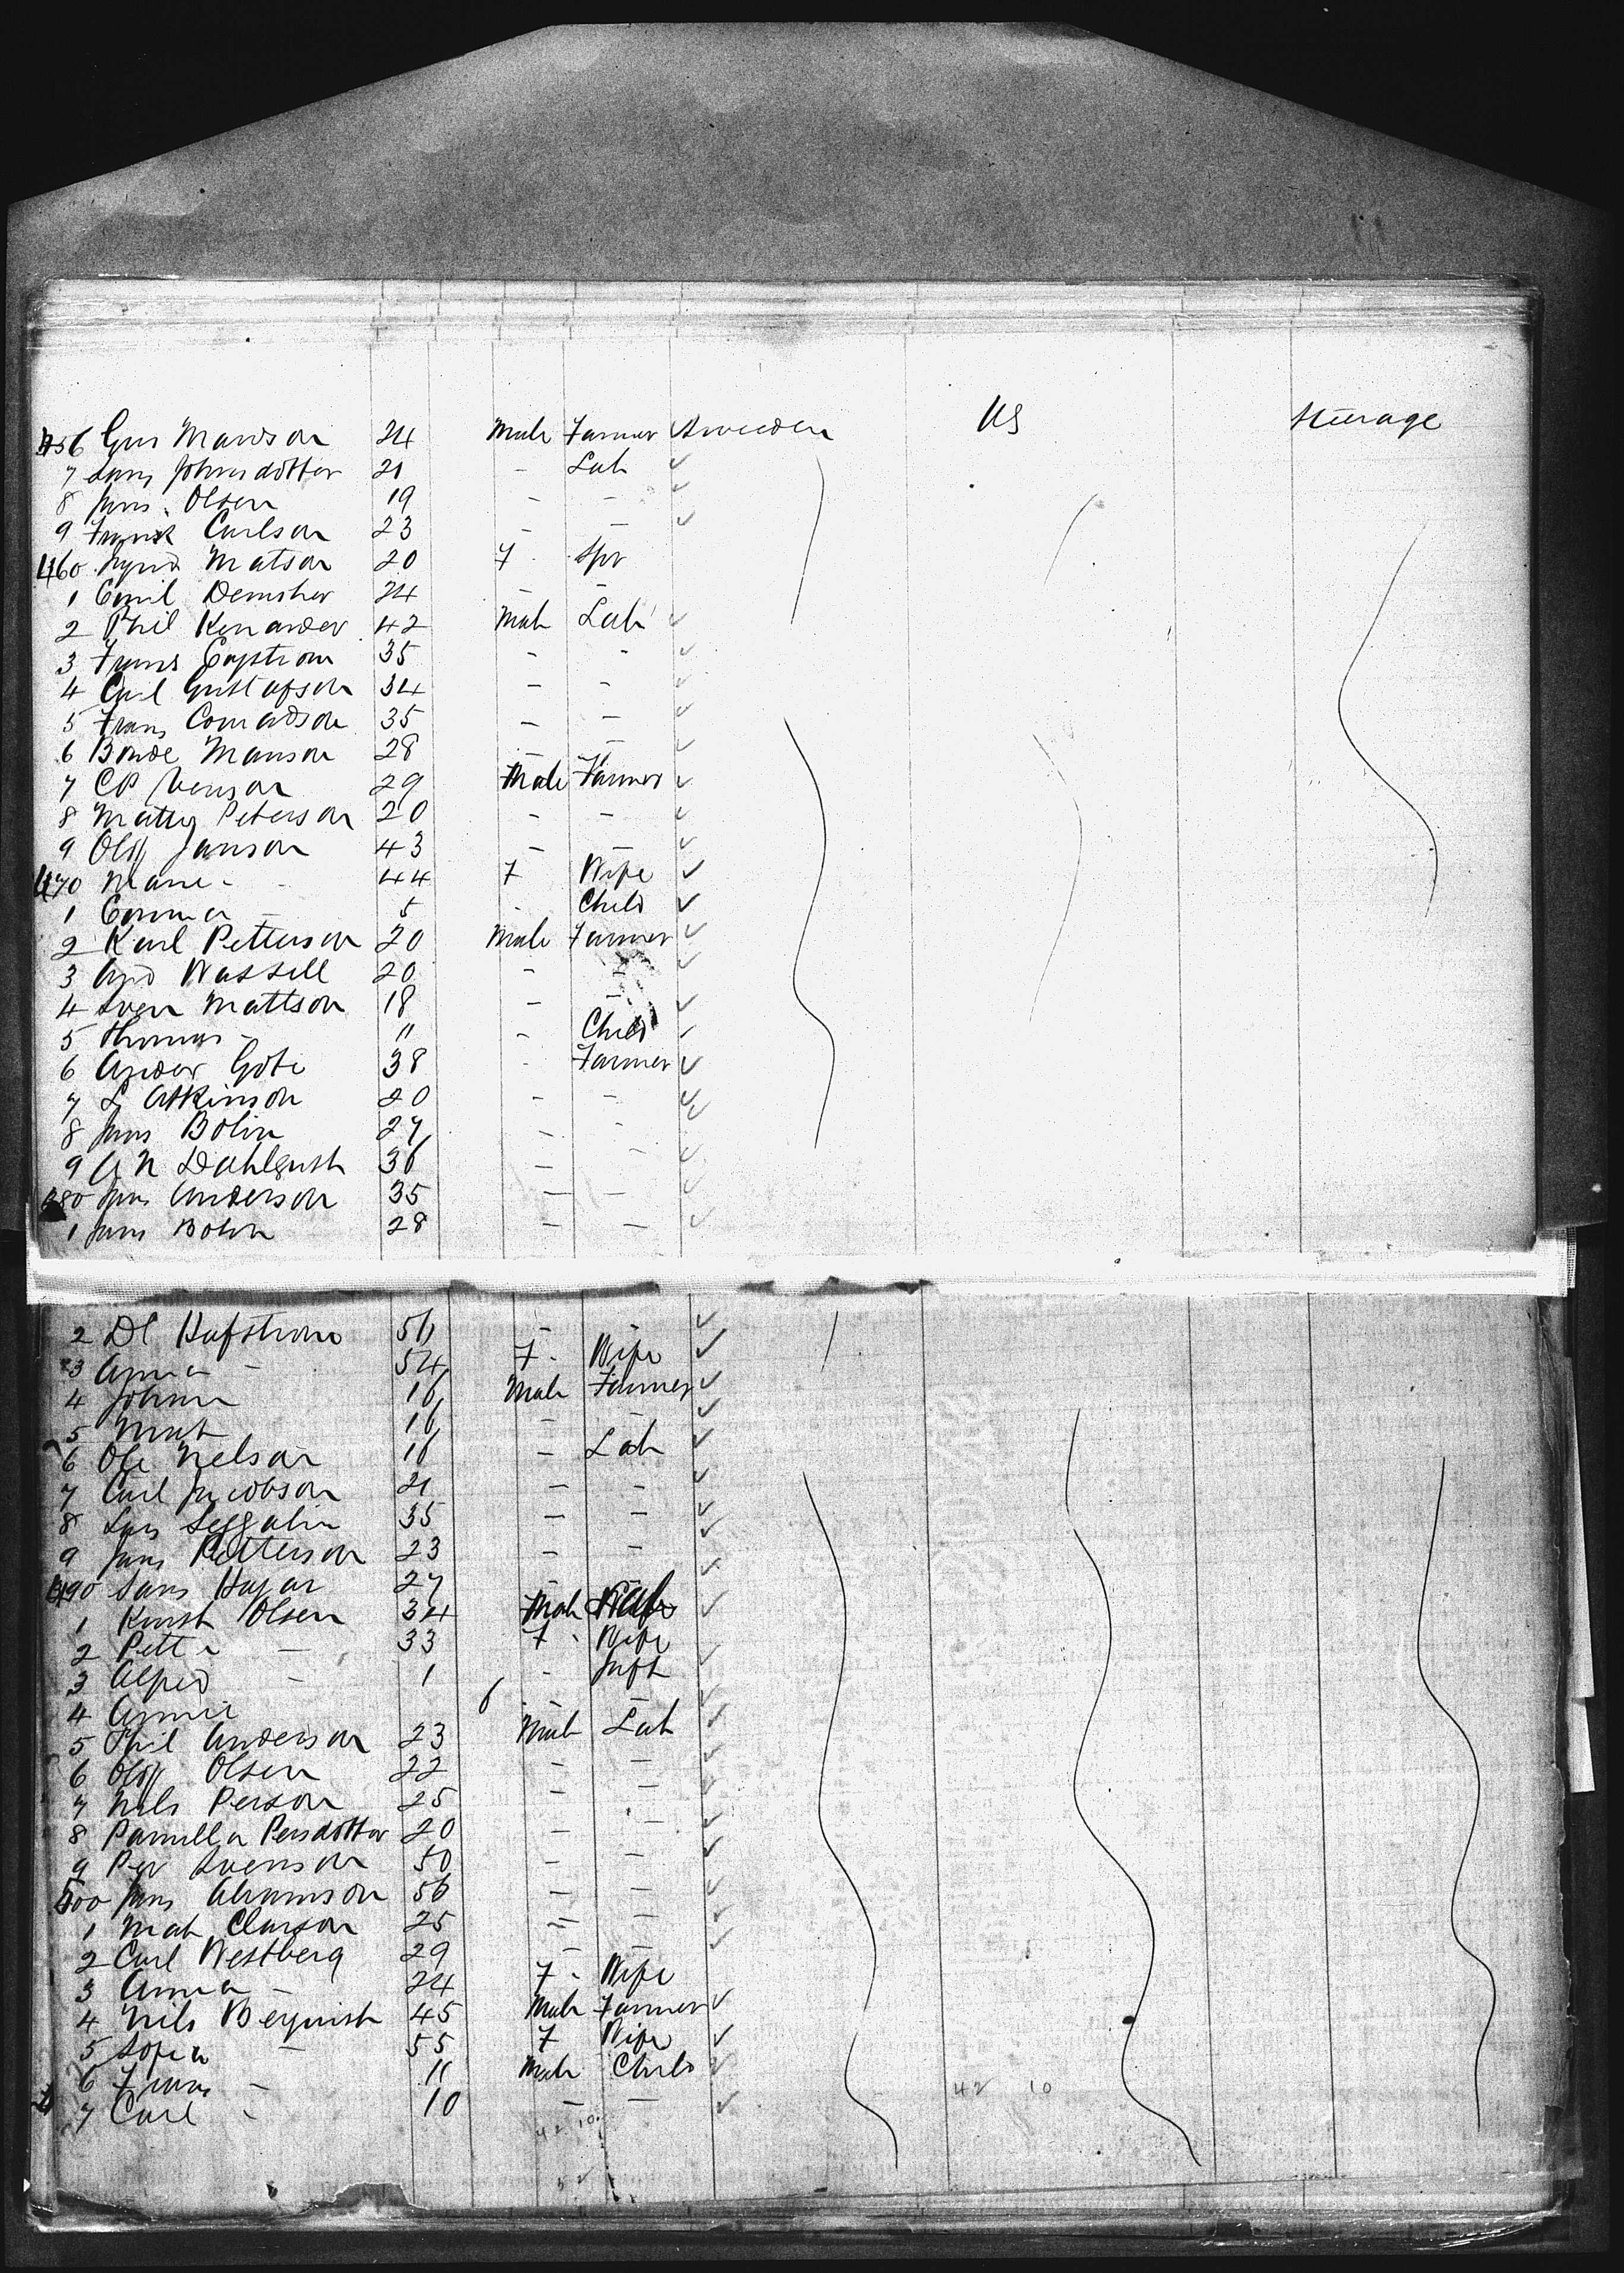 456 Gus Manson 24 Male Farmer Sweeden US Steerage
7 Lars Johnsdotter 21 - Lab ✓
8 Jans Olsen 19 - - ✓
9 Frank Carlson 23 - - ✓
460 Matson 20 F Spr
1 Emil 24 -
2 Phil Kenander 42 Male Lab ✓
3 Frans Engstrom 35 - - ✓
4 Carl Gustafson 34 - - ✓
5 Frans Conradson 35 - - ✓
6 Bonde Manson 28 - - ✓
7 CP Svenson 29 Male Farmer ✓
8 Matty Peterson 20 - - ✓
9 Olif Janson 43 - - ✓
470 Marie - 44 F Wife ✓
1 Emma - 5 - Child ✓
2 Karl Petterson 20 Male Farmer ✓
3 And Wassell 20 - - ✓
4 Sven Mattson 18 - - ✓
5 Thomas - 11 - Child ✓
6 Ander Gote 38 - Farmer ✓
7 L Atkinson 20 - - ✓
8 Jans Bolin 27 - - ✓
9 A N Dahlquist 36 - - ✓
480 Jans Anderson 35 - - ✓
1 Jans Bohn 28 - - ✓
2 Dl Hufstrom 56 - - ✓
3 Anna - 54 F - Wife ✓
4 Johan 16 Male Farmer ✓
5 Mat 16 - - ✓
6 Ole Nelson 16 - Lab ✓
7 Carl Jacobson 21 - - ✓
8 Lars 35 - - ✓
9 Jans Petterson 23 - - ✓
490 Hagar 27 - - ✓
1 Olsen 34 Male ✓
2 - 33 F - Wife
3 Alfred - 1 - Inft ✓
4 Annie 6 - - ✓
5 Phil Anderson 23 Male Lab ✓
6 Olif Olsen 22 - - ✓
7 Nils Person 25 - - ✓
8 Pernilla Persdotter 20 - - ✓
9 Per Svenson 50 - - ✓
500 Jans Abramson 56 - - ✓
1 Mat Clauson 25 - - ✓
2 Carl Westberg 29 - - ✓
3 Anna - 24 F - Wife
4 Nils Berquist 45 Male Farmer ✓
5 Sofia - 55 F Wife ✓
6 Frans - 11 Male Child ✓
7 Carl - 10 - - ✓
42 10
42 10